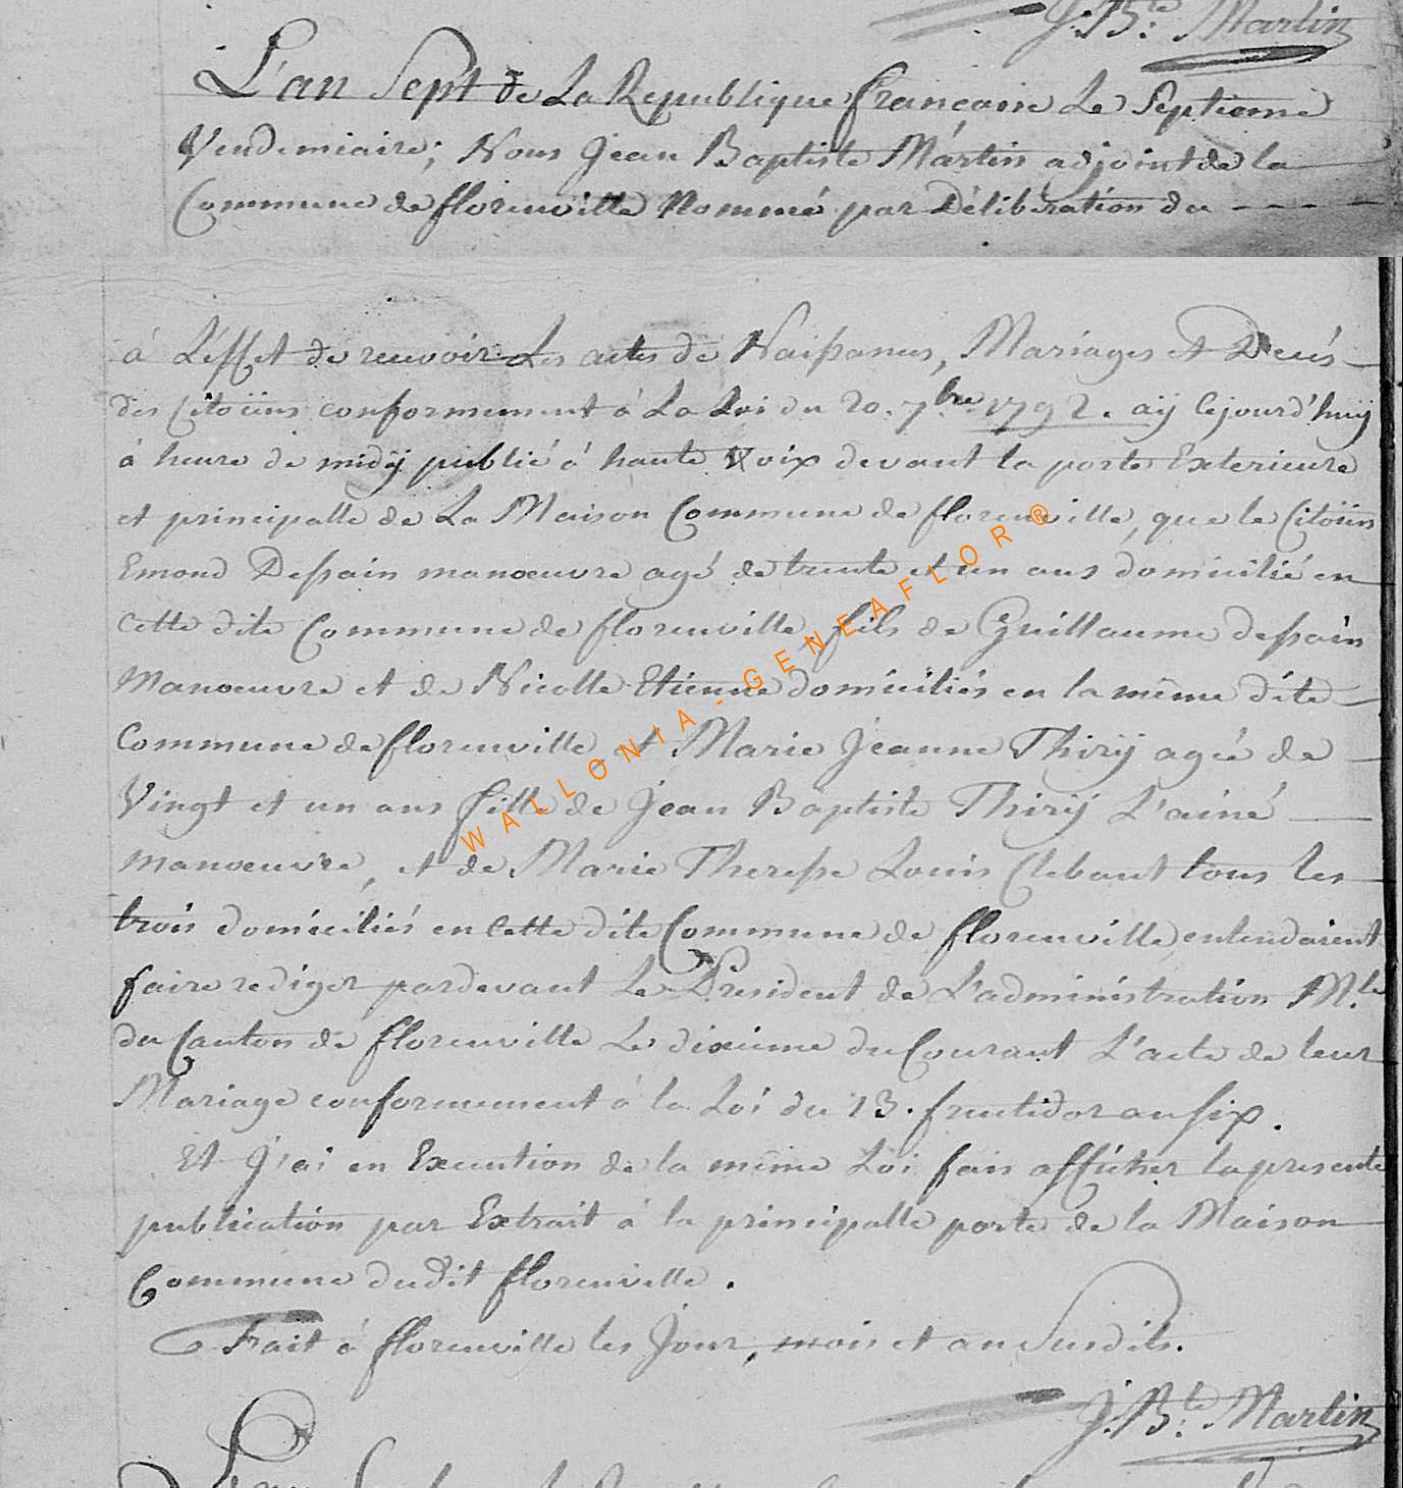 J. Bte. Martin
L'an Sept de La Republique francaise Le Septieme
Vendemiaire; Nous Jean Baptiste Martin adjoint de la
Commune de florenville Nommé par Déliberation du - - - -
à L'effet de recevoir Les actes de Naissances, Mariages et Decés
des Citoïens conformement à La Loi du 20. 7bre 1792. aÿ Cejourd'huÿ
à heure de midÿ publié à haute Voix devant la porte Exterieure
et principalle de La Maison Commune de florenville, que le Citoïen
Emond Dessain manoeuvre agé de trente et un ans domicilié en
cette dite Commune de florenville, fils de Guillaume dessain
Manoeuvre et de Nicolle Etienne domiciliés en la même dite
Commune de florenville, et Marie Jeanne Thirÿ agée de
Vingt et un ans fille de Jean Baptiste Thirÿ L'ainé
manoeuvre, et de Marie Therese Louis Clebant tous les
trois domiciliés en cette dite Commune de florenville, entendoient
faire rediger pardevant Le President de L'administration M.le
du Canton de florenville Le dixieme du Courant L'acte de leur
Mariage conformement à la Loi du 13. fructidor an six.
Et J'ai en Execution de la même Loi fais afficher la presente
publication par Extrait à la principalle porte de la Maison
Commune dudit florenville.
Fait à florenville les Jour, mois et an Susdits.
J. Bte. Martin
WALLONIA-GENEAFLOR®